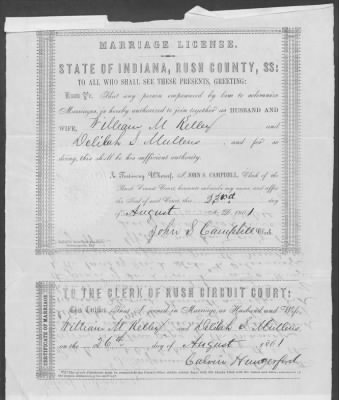 MARRIAGE LICENSE.
STATE OF INDIANA, RUSH COUNTY, SS:
TO ALL WHO SHALL SEE THESE PRESENTS, GREETING:
Know Ye, That any person empowered by law to solemnize
Marriages, is hereby authorized to join together as HUSBAND AND
WIFE, William M Kelley and
Delilah S Mullens and for so
doing, this shall be his sufficient authority.
In Testimony Whereof, I, JOHN S. CAMPBELL, Clerk of the
Rush Circuit Court, hereunto subscribe my name, and affix
the Seal of said Court, this 23rd
of August 1861
John S Campbell Clerk
TO THE CLERK OF RUSH CIRCUIT COURT:
CERTIFICATE OF MARRIAGE
This Certifies, That I joined in Marriage, as Husband and Wife,
William M Kelley and Delilah S Mullens
on the 26th day of August 1861
Calvin Hungerford